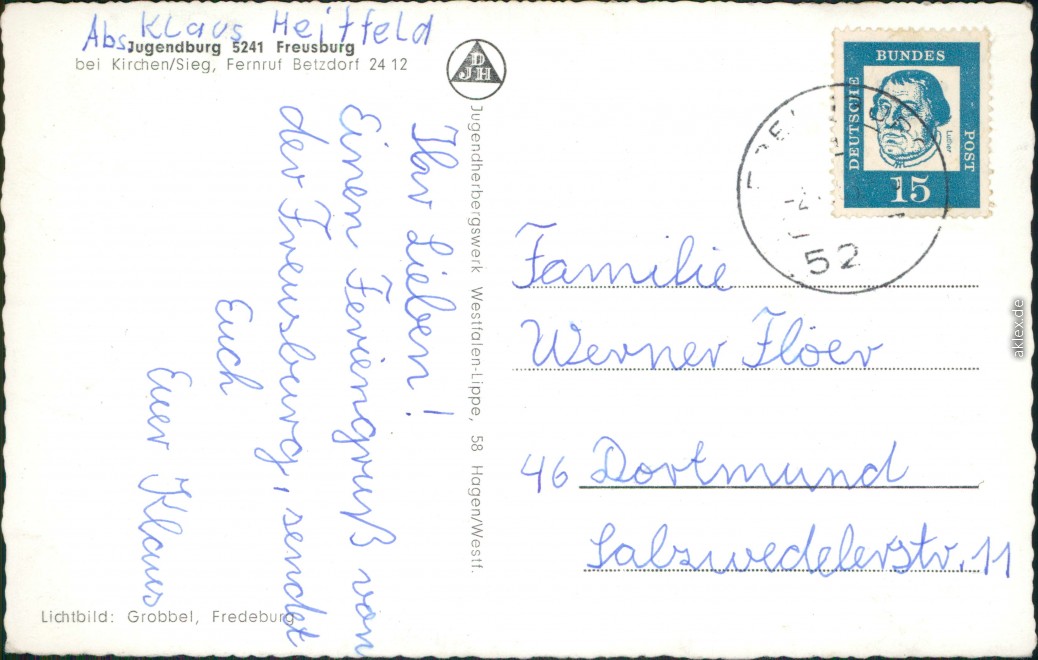 Abs. Klaus Heitfeld
Jugendburg 5241 Freusburg
bei Kirchen/Sieg, Fernruf Betzdorf 24 12
DJH
Jugendherbergswerk Westfalen-Lippe, 58 Hagen/Westf.
Ihr Lieben!
Einen Feriengruß von
der Freusburg, sendet
Euch
Euer Klaus
Lichtbild: Grobbel, Fredeburg
DEUTSCHE
BUNDES
POST
Luther
15
52
Familie
Werner Flöer
46 Dortmund
Salzwedelerstr. 11
aklex.de